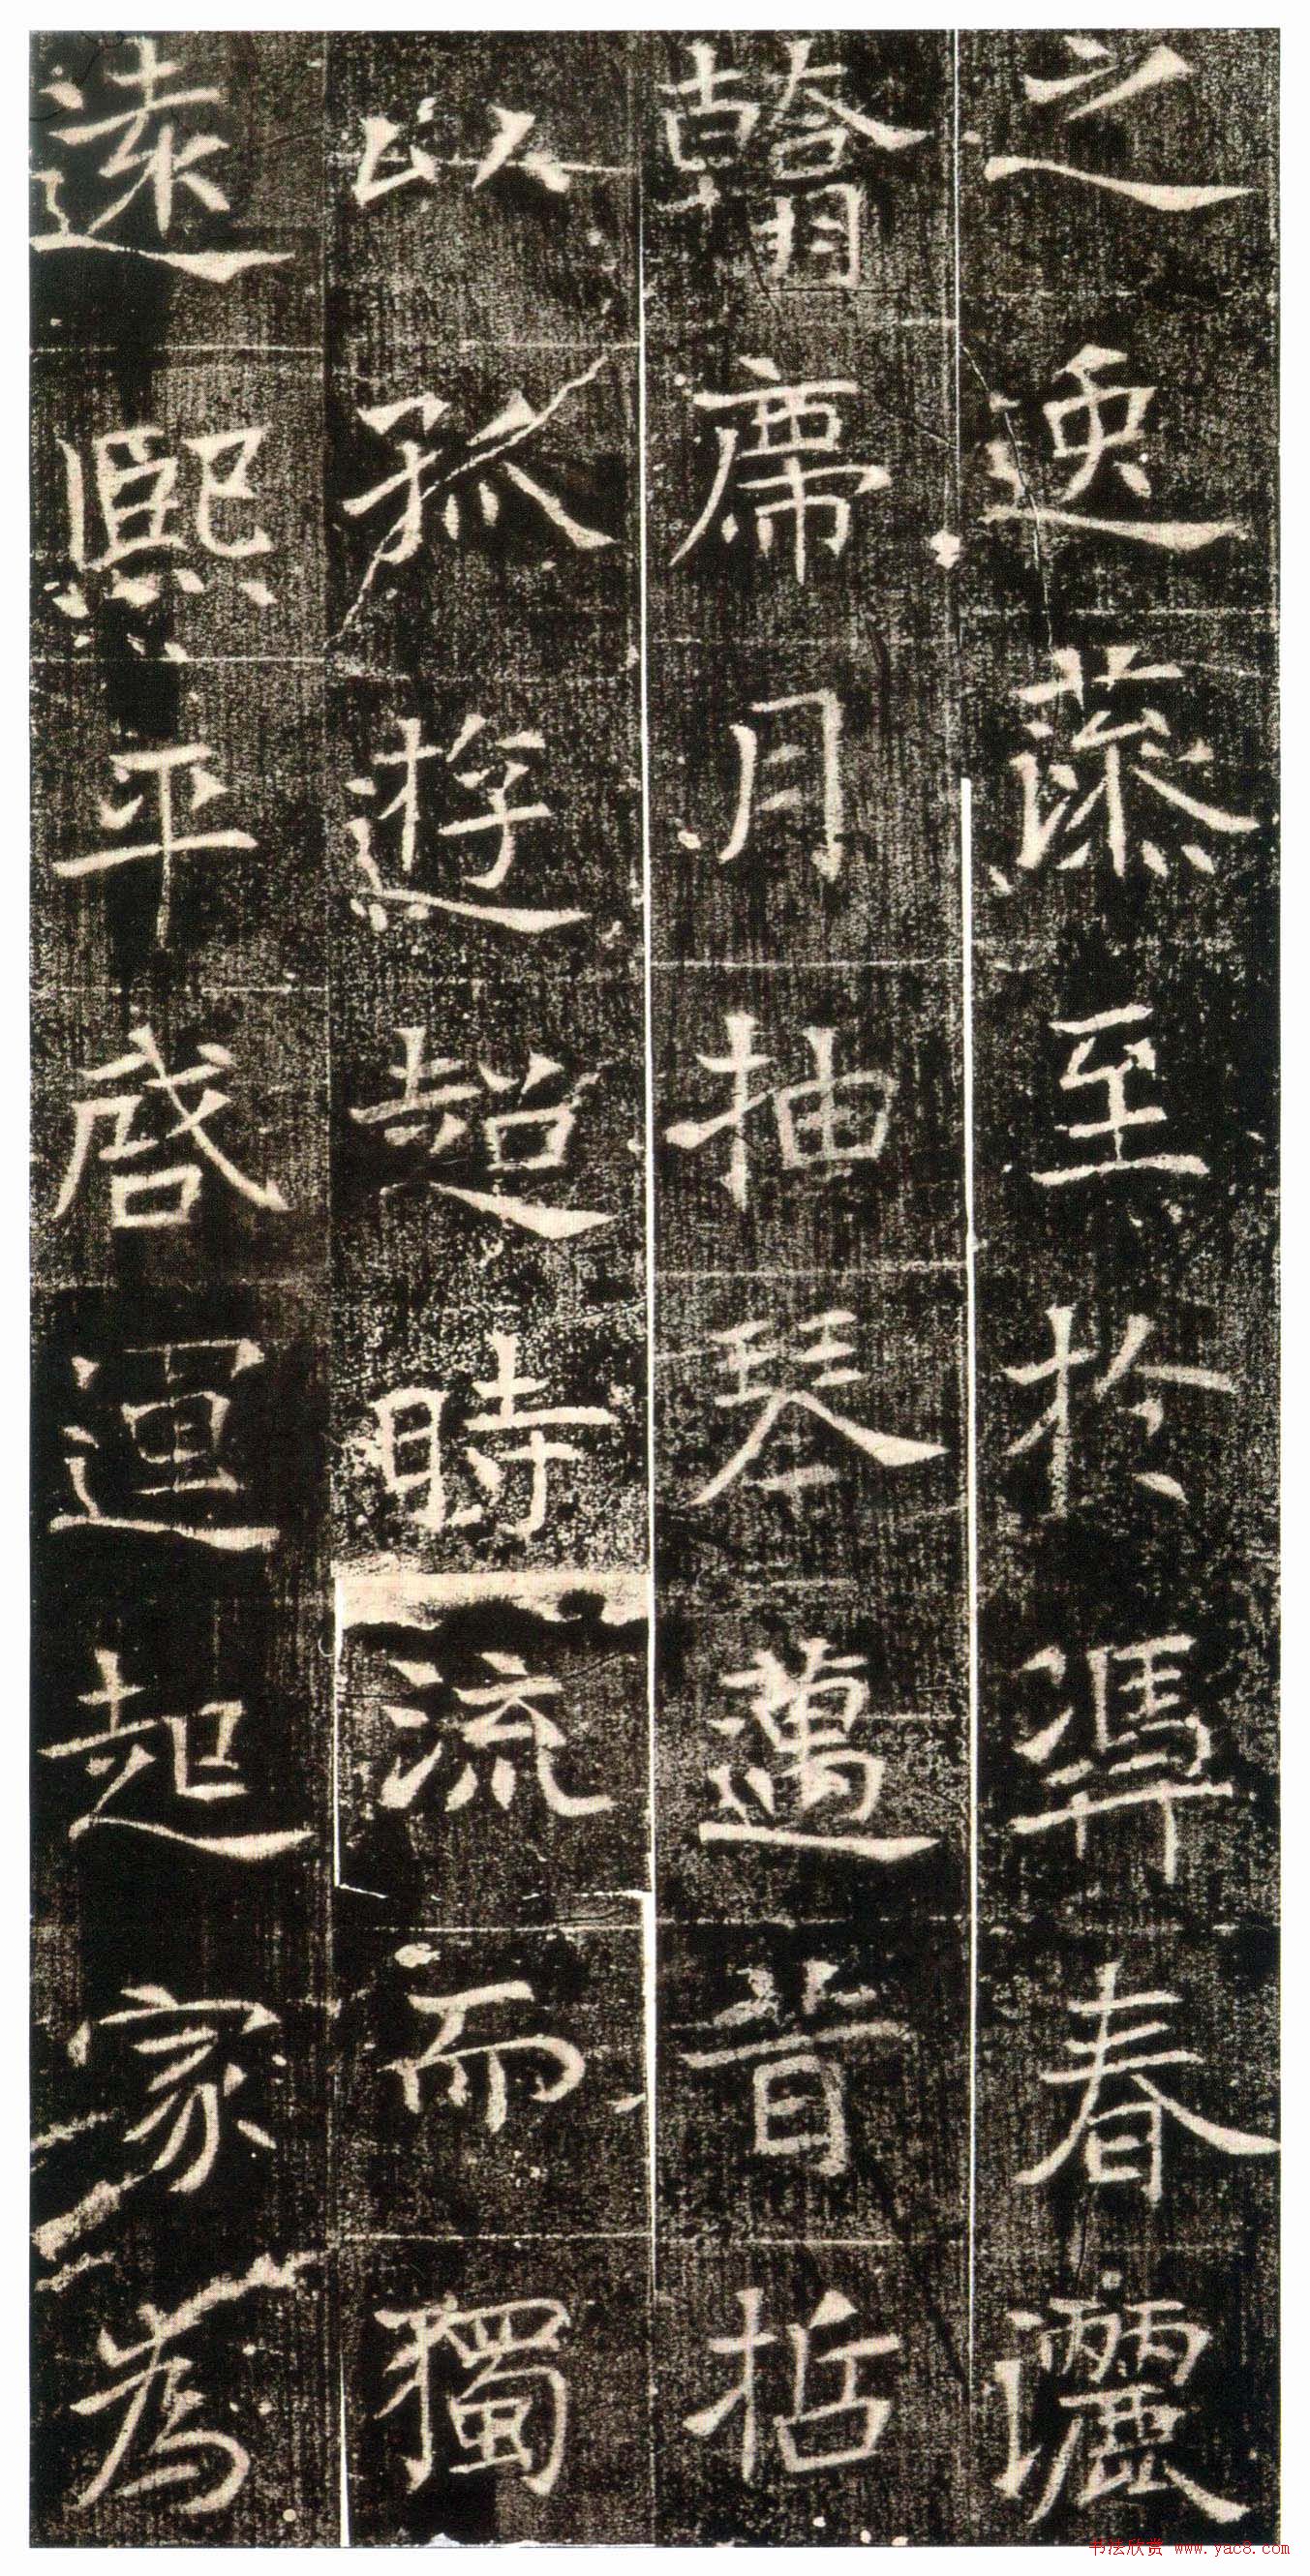 之逸藻至於憑春灑
翰席月抽琴邁昔哲
以孤遊超時流而獨
遠熙平啓運起家為
书法欣赏 www.yac8.com